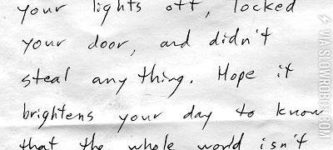 your lights off, locked
your door, and didn't
steal any thing. Hope it
brightens your day to know
that the whole world isn't